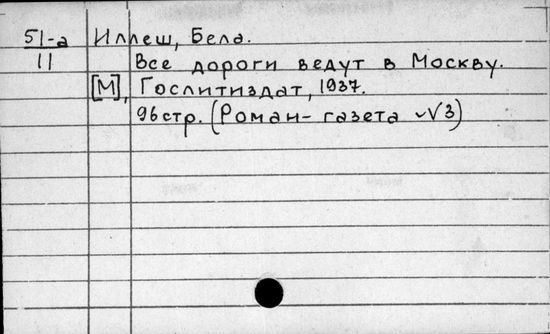 51-а Иллеш, Бела.
11 Все дороги ведут в Москву.
[М], Гослитиздат, 1937.
96стр. (Роман-газета №3)